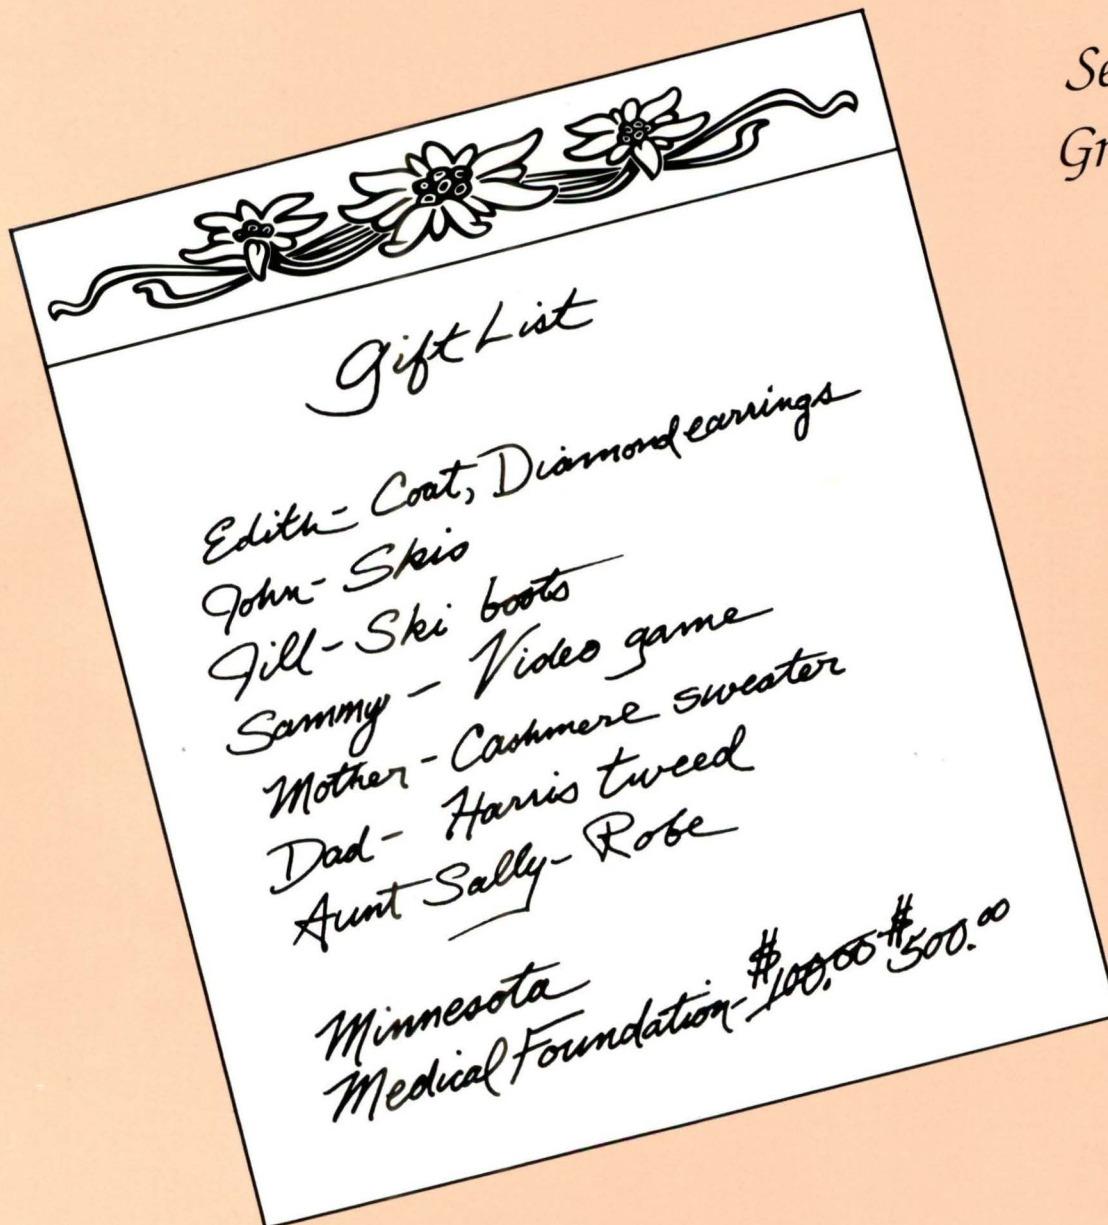 Gift List
Edith - Coat, Diamond earrings
John - Skis
Jill - Ski boots
Sammy - Video game
Mother - Cashmere sweater
Dad - Harris tweed
Aunt Sally - Robe
Minnesota
Medical Foundation - $100.00 $500.00